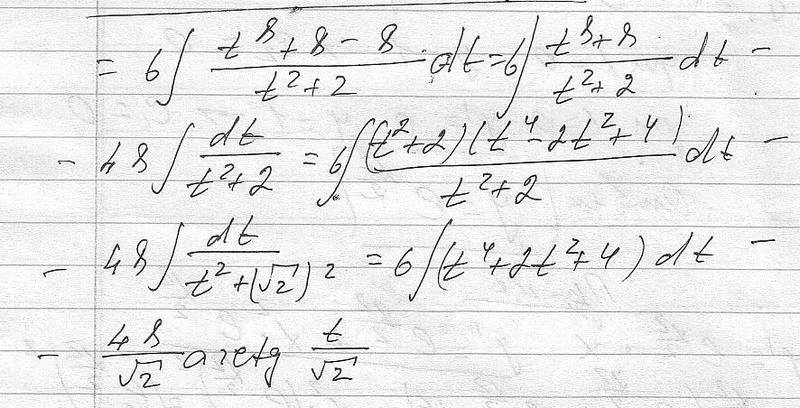 = 6∫ (t⁸ + 8 − 8)/(t² + 2) dt = 6∫ (t⁸ + 8)/(t² + 2) dt −
− 48∫ dt/(t² + 2) = 6∫ (t² + 2)(t⁴ − 2t² + 4)/(t² + 2) dt −
− 48∫ dt/(t² + (√2)²) = 6∫ (t⁴ + 2t² + 4) dt −
− 48/√2 arctg t/√2